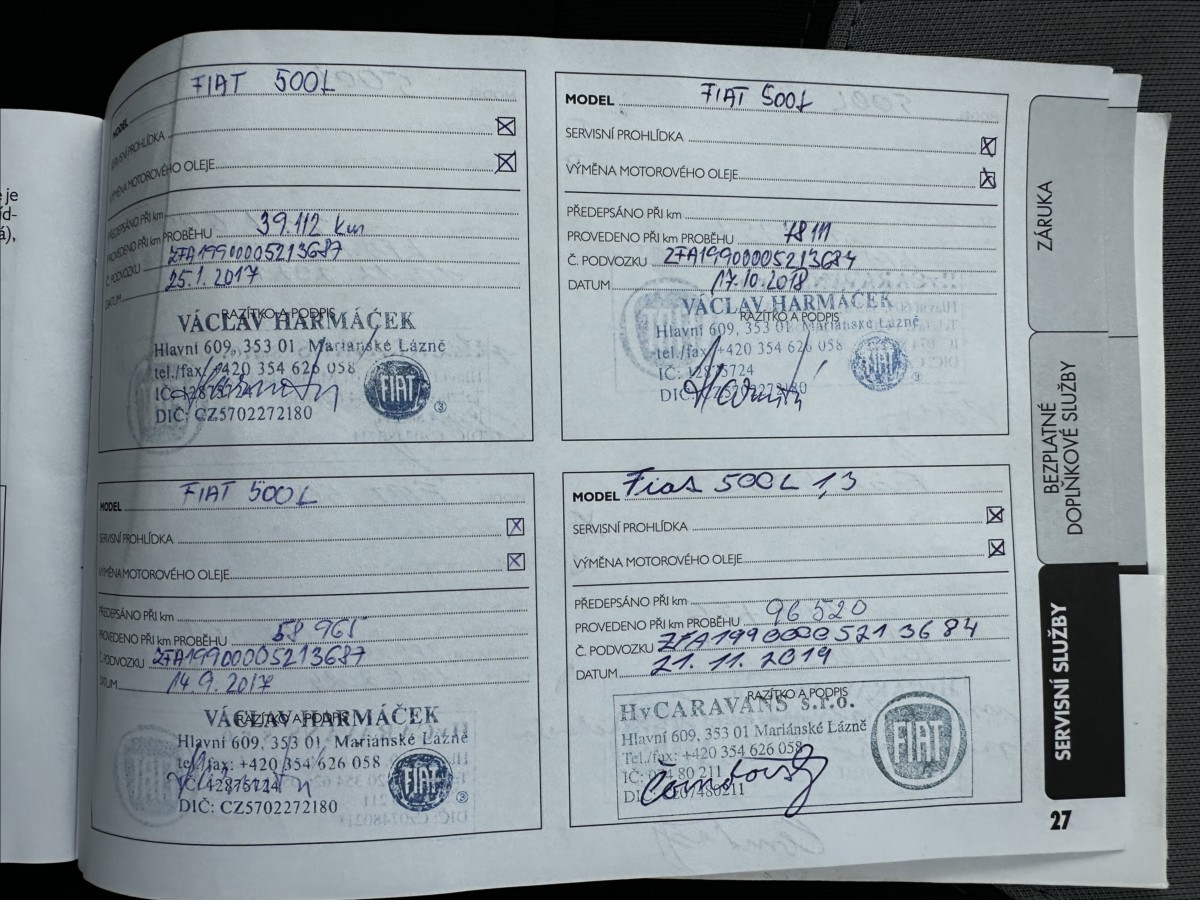 je
íd-
á),
MODEL FIAT 500L
SERVISNÍ PROHLÍDKA ☒
VÝMĚNA MOTOROVÉHO OLEJE ☒
PŘEDEPSÁNO PŘI km
PROVEDENO PŘI km PROBĚHU 39.112 km
Č. PODVOZKU ZFA19900005213687
DATUM 25.1.2017
RAZÍTKO A PODPIS
VÁCLAV HARMÁČEK
Hlavní 609, 353 01 Mariánské Lázně
tel./fax: +420 354 626 058
IČ: 12875724
DIČ: CZ5702272180
FIAT
③
MODEL FIAT 500L
SERVISNÍ PROHLÍDKA ☒
VÝMĚNA MOTOROVÉHO OLEJE ☒
PŘEDEPSÁNO PŘI km
PROVEDENO PŘI km PROBĚHU 78 111
Č. PODVOZKU ZFA19900005213684
DATUM 17.10.2018
RAZÍTKO A PODPIS
VÁCLAV HARMÁČEK
Hlavní 609, 353 01 Mariánské Lázně
tel./fax: +420 354 626 058
IČ: 12875724
DIČ: CZ5702272180
FIAT
③
MODEL FIAT 500L
SERVISNÍ PROHLÍDKA ☒
VÝMĚNA MOTOROVÉHO OLEJE ☒
PŘEDEPSÁNO PŘI km
PROVEDENO PŘI km PROBĚHU 58 965
Č. PODVOZKU ZFA19900005213687
DATUM 14.9.2017
RAZÍTKO A PODPIS
VÁCLAV HARMÁČEK
Hlavní 609, 353 01 Mariánské Lázně
tel./fax: +420 354 626 058
IČ: 12875724
DIČ: CZ5702272180
FIAT
③
MODEL Fiat 500L 1,3
SERVISNÍ PROHLÍDKA ☒
VÝMĚNA MOTOROVÉHO OLEJE ☒
PŘEDEPSÁNO PŘI km
PROVEDENO PŘI km PROBĚHU 96 520
Č. PODVOZKU ZFA19900005213684
DATUM 21.11.2019
RAZÍTKO A PODPIS
HvCARAVANS s.r.o.
Hlavní 609, 353 01 Mariánské Lázně
Tel./fax: +420 354 626 058
IČ: 074 80 211
DIČ: CZ07480211
FIAT
ZÁRUKA
BEZPLATNÉ
DOPLŇKOVÉ SLUŽBY
SERVISNÍ SLUŽBY
27